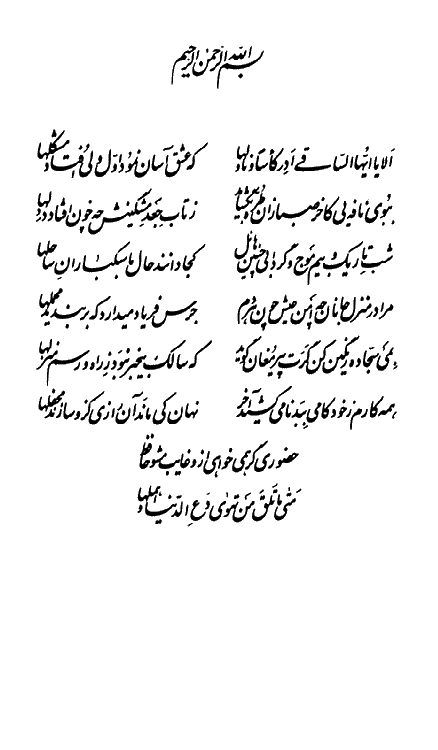 بسم الله الرحمن الرحیم
اَلا یا اَیّها السّاقے اَدِر کَأساً وَ ناوِلها که عشق آسان نمود اوّل ولی افتاد مشکلها
ببوی نافه‌ئی کاخر صبا زان طُرّه بگشاید ز تاب جَعد مشکینش چه خون افتاد در دلها
شب تاریک و بیم موج و گردابی چنین هائل کجا دانند حال ما سبکباران ساحلها
مرا در منزل جانان چه امن عیش چون هر دم جرس فریاد میدارد که بربندید محملها
بمی سجاده رنگین کن گرت پیر مغان گوید که سالک بیخبر نبود ز راه و رسم منزلها
همه کارم ز خود کامی ببدنامی کشید آخر نهان کی ماند آن رازی کزو سازند محفلها
حضوری گر همی خواهی ازو غایب مشو حافظ
مَتٰی ما تَلقَ مَن تهوٰی دَعِ الدّنیا و اهملها